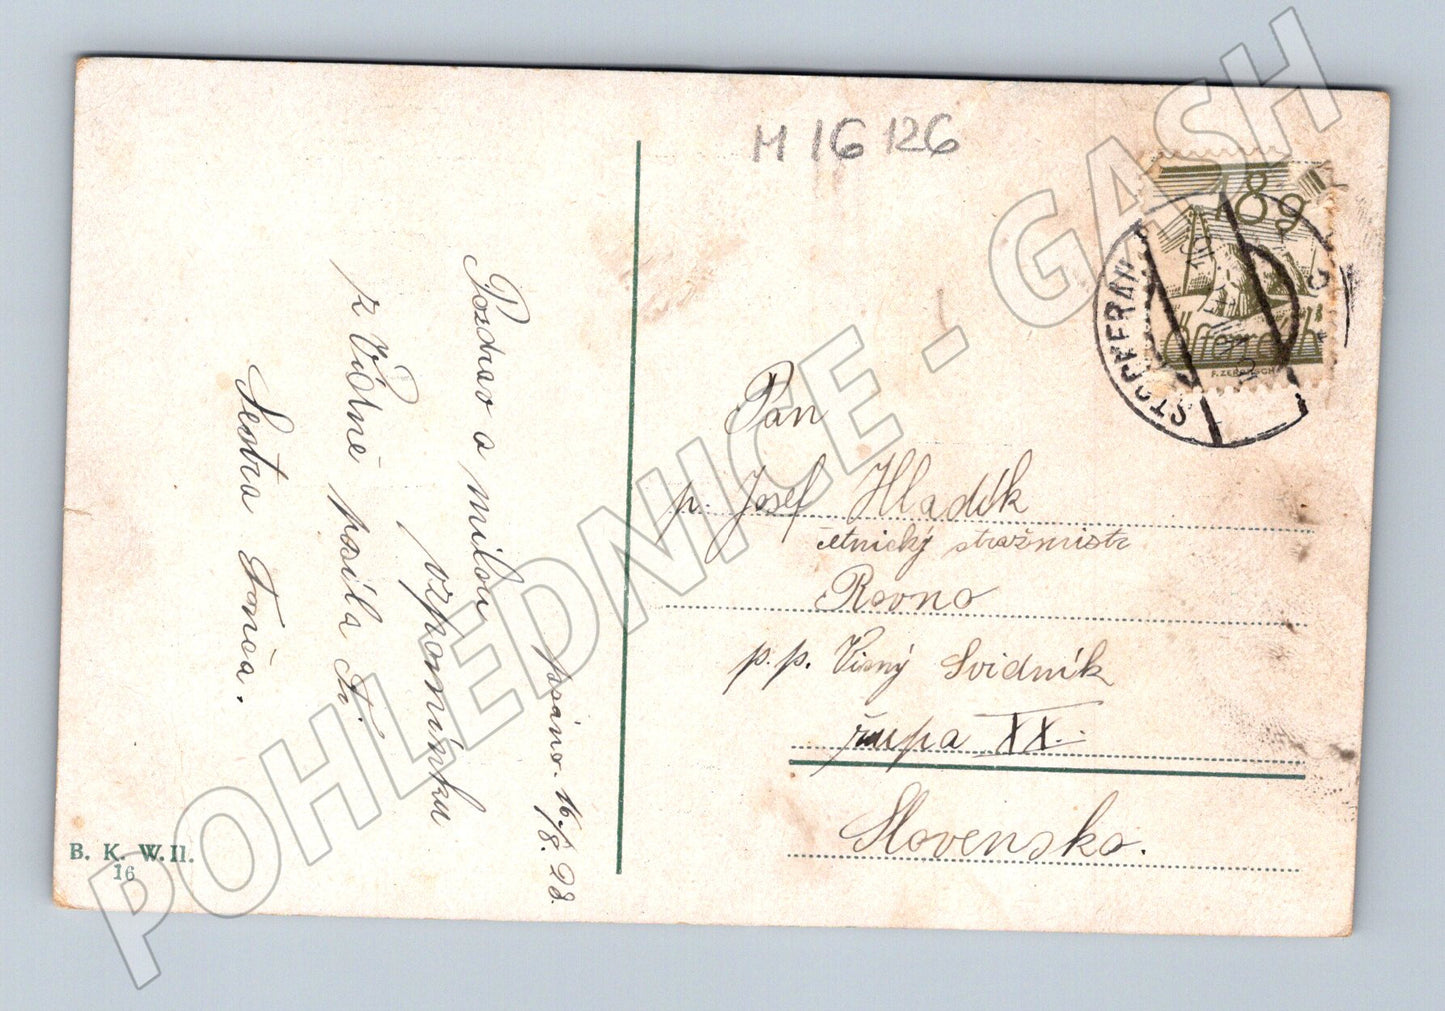 M 16 126
Pozdrav a milou
vzpomínku
z Vídně posílá Ti
Sestra Tonča.
psáno. 16/8. 28.
Pan
p. Josef Hladík
četnický stražmistr
Rovno
p.p. Visný Svidník
župa XX.
Slovensko.
B. K. W. II.
16
18g
Österreich
F. ZERRITSCH
STOCKERAU
POHLEDNICE - GASH